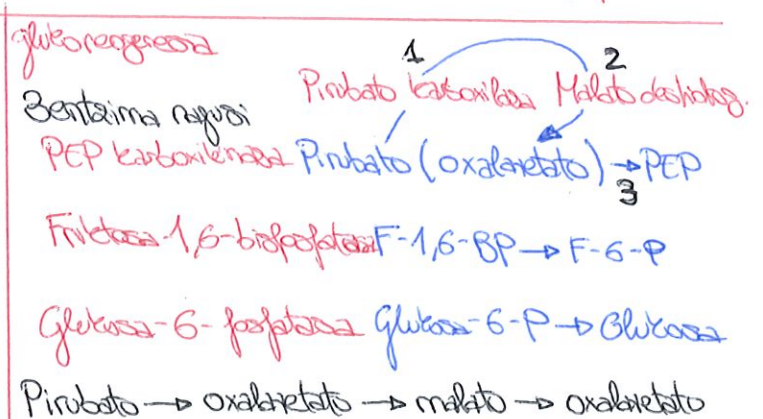 glukoneogenesia
1 2
Pirubato karboxilasa Malato deshidrog.
3 entzima nagusi
PEP karboxikinasa Pirubato (oxalazetato) → PEP
3
Fruktosa-1,6-bisfosfatasa F-1,6-BP → F-6-P
Glukosa-6-fosfatasa Glukosa-6-P → Glukosa
Pirubato → oxalazetato → malato → oxalazetato